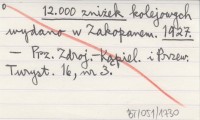 12.000 zniżek kolejowych
wydano w Zakopanem. 1927.
— Prz. Zdroj.-Kąpiel. i Przew.
Turyst. 16, nr 3.
BT/051/1930